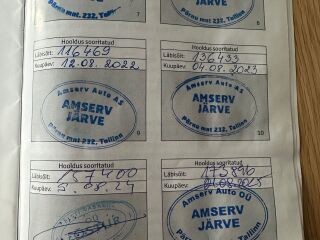 Pärnu mnt. 232, Tallinn
7
Pärnu mnt. 232, Tallinn
8
Hooldus sooritatud
Läbisõit: 116469
Kuupäev: 12.08.2022
Amserv Auto AS
AMSERV
JÄRVE
Pärnu mnt 232, Tallinn
9
Hooldus sooritatud
Läbisõit: 136433
Kuupäev: 04.08.2023
Amserv Auto AS
AMSERV
JÄRVE
Pärnu mnt 232, Tallinn
10
Hooldus sooritatud
Läbisõit: 157400
Kuupäev: 5.08.24
Hooldus sooritatud
Läbisõit: 173896
Kuupäev:
Amserv Auto OÜ
AMSERV
JÄRVE